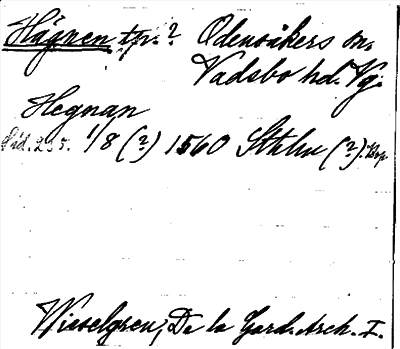 Hägnen tp.? Odensåkers sn.
Vadsbo hd. Vg.
Hegnan
Sid. 235. 1/8 (?) 1560 Sthlm (?). Kop.
Wieselgren, De la Gard. Arch. I.